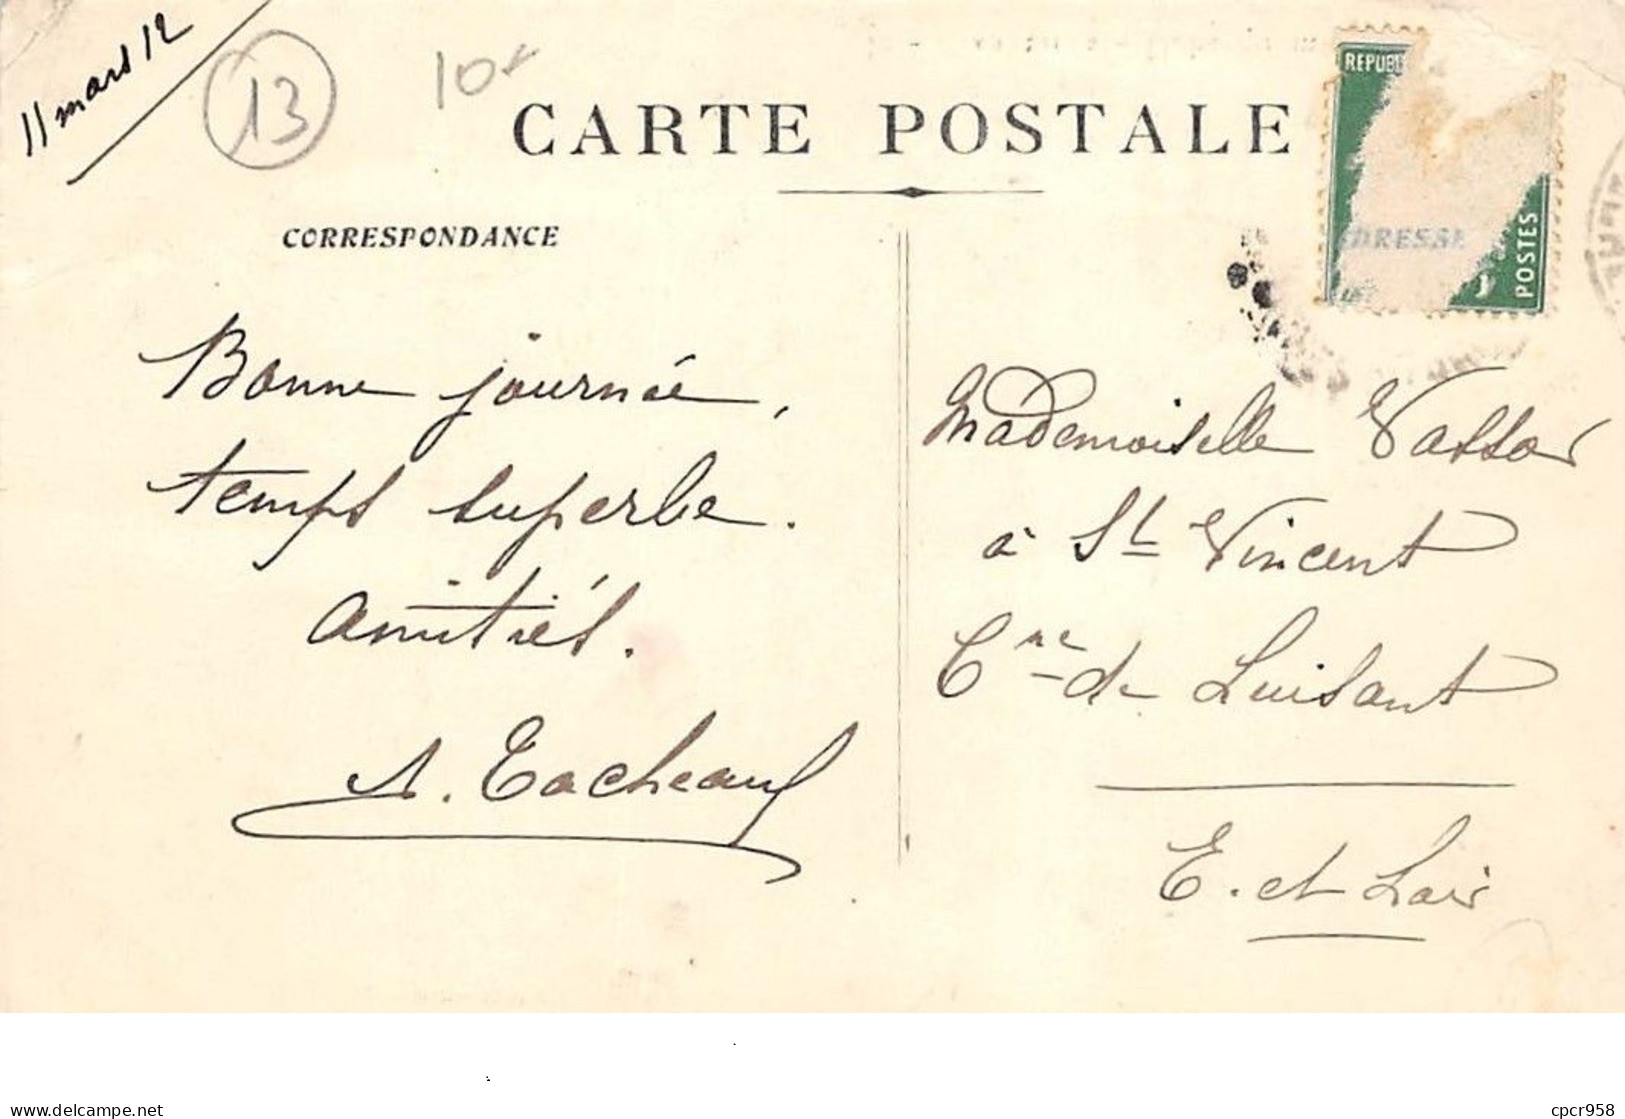 11 mars 12
13
10
CARTE POSTALE
REPUBL
POSTES
DRESSE
CORRESPONDANCE
Bonne journée,
temps superbe.
Amitiés.
A. Tacheau
Mademoiselle Vassor
à St Vincent
Cne de Luisant
E. et Loir
delcampe.net
cpcr958